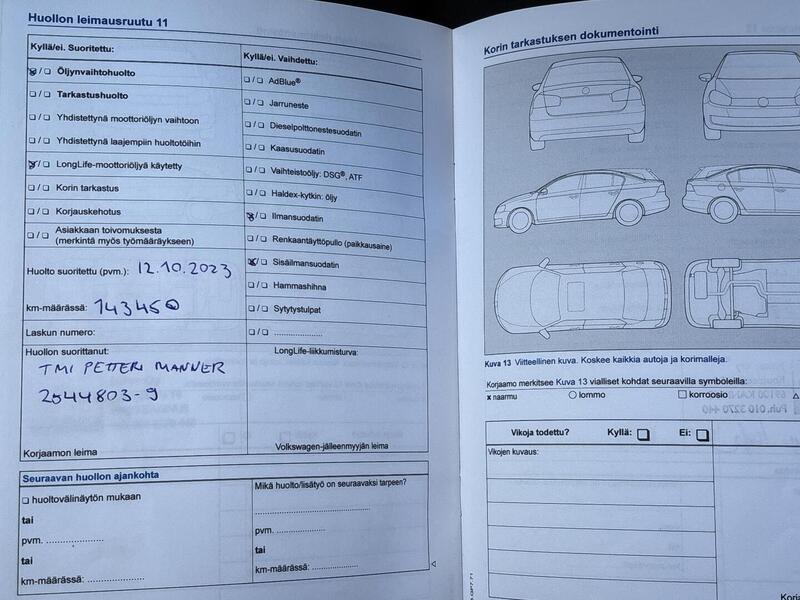 Huollon leimausruutu 11
Kyllä/ei. Suoritettu:
☒/☐ Öljynvaihtohuolto
☐/☐ Tarkastushuolto
☐/☐ Yhdistettynä moottoriöljyn vaihtoon
☐/☐ Yhdistettynä laajempiin huoltotöihin
☒/☐ LongLife-moottoriöljyä käytetty
☐/☐ Korin tarkastus
☐/☐ Korjauskehotus
☐/☐ Asiakkaan toivomuksesta
(merkintä myös työmääräykseen)
Huolto suoritettu (pvm.): 12.10.2023
km-määrässä: 143450
Laskun numero:
Huollon suorittanut:
TMI PETTERI MANNER
2544803-9
Korjaamon leima
Kyllä/ei. Vaihdettu:
☐/☐ AdBlue®
☐/☐ Jarruneste
☐/☐ Dieselpolttonestesuodatin
☐/☐ Kaasusuodatin
☐/☐ Vaihteistoöljy: DSG®, ATF
☐/☐ Haldex-kytkin: öljy
☒/☐ Ilmansuodatin
☐/☐ Renkaantäyttöpullo (paikkausaine)
☒/☐ Sisäilmansuodatin
☐/☐ Hammashihna
☐/☐ Sytytystulpat
☐/☐ ....................
LongLife-liikkumisturva:
Volkswagen-jälleenmyyjän leima
Seuraavan huollon ajankohta
☐ huoltovälinäytön mukaan
tai
pvm. ....................
tai
km-määrässä: ....................
Mikä huolto/lisätyö on seuraavaksi tarpeen?
........................................
pvm. ....................
tai
km-määrässä: ....................
Korin tarkastuksen dokumentointi
Kuva 13 Viitteellinen kuva. Koskee kaikkia autoja ja korimalleja.
Korjaamo merkitsee Kuva 13 vialliset kohdat seuraavilla symboleilla:
x naarmu ○ lommo □ korroosio △
Vikoja todettu? Kyllä: ☐ Ei: ☐
Vikojen kuvaus: